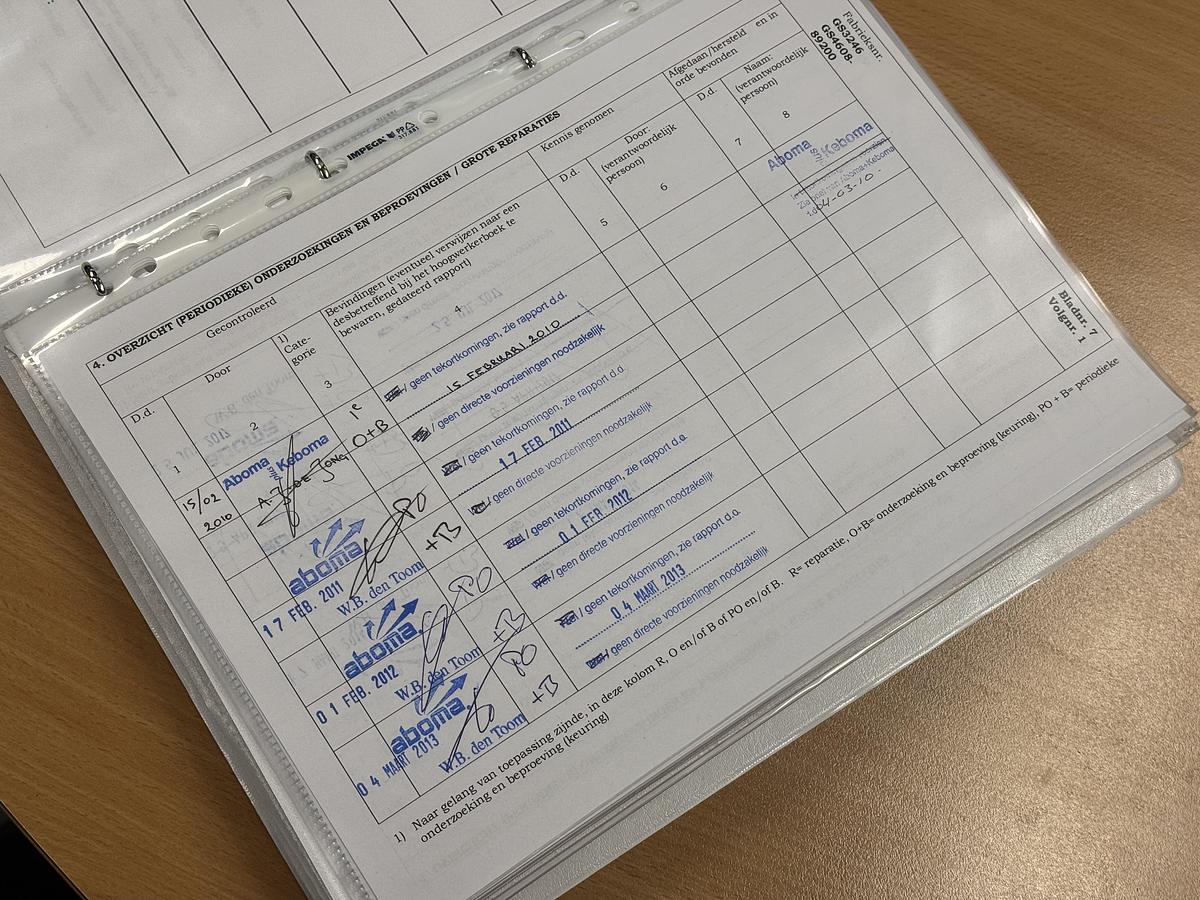 IMPEGA PP
317.881
Fabrieksnr.
GS3246
GS4608-
89200
4. OVERZICHT (PERIODIEKE) ONDERZOEKINGEN EN BEPROEVINGEN / GROTE REPARATIES
Gecontroleerd
Kennis genomen
Afgedaan/hersteld en in
orde bevonden
D.d.
Door
1)
Cate-
gorie
Bevindingen (eventueel verwijzen naar een
desbetreffend bij het hoogwerkerboek te
bewaren, gedateerd rapport)
D.d.
Door:
(verantwoordelijk
persoon)
D.d.
Naam:
(verantwoordelijk
persoon)
1
2
3
4
5
6
7
8
15/02
2010
Aboma plus Keboma
A.J. de Jong
O+B
/ geen tekortkomingen, zie rapport d.d.
15 FEBRUARI 2010
/ geen directe voorzieningen noodzakelijk
Aboma plus Keboma
Zie Aboma+Keboma
04-03-10.
17 FEB. 2011
aboma
W.B. den Toom
PO
+B
/ geen tekortkomingen, zie rapport d.d.
17 FEB. 2011
/ geen directe voorzieningen noodzakelijk
01 FEB. 2012
aboma
W.B. den Toom
PO
+B
/ geen tekortkomingen, zie rapport d.d.
01 FEB. 2012
/ geen directe voorzieningen noodzakelijk
04 MAART 2013
aboma
W.B. den Toom
PO
+B
/ geen tekortkomingen, zie rapport d.d.
04 MAART 2013
/ geen directe voorzieningen noodzakelijk
Bladnr. 7
Volgnr. 1
1) Naar gelang van toepassing zijnde, in deze kolom R, O en/of B of PO en/of B. R= reparatie, O+B= onderzoeking en beproeving (keuring), PO + B= periodieke
onderzoeking en beproeving (keuring)